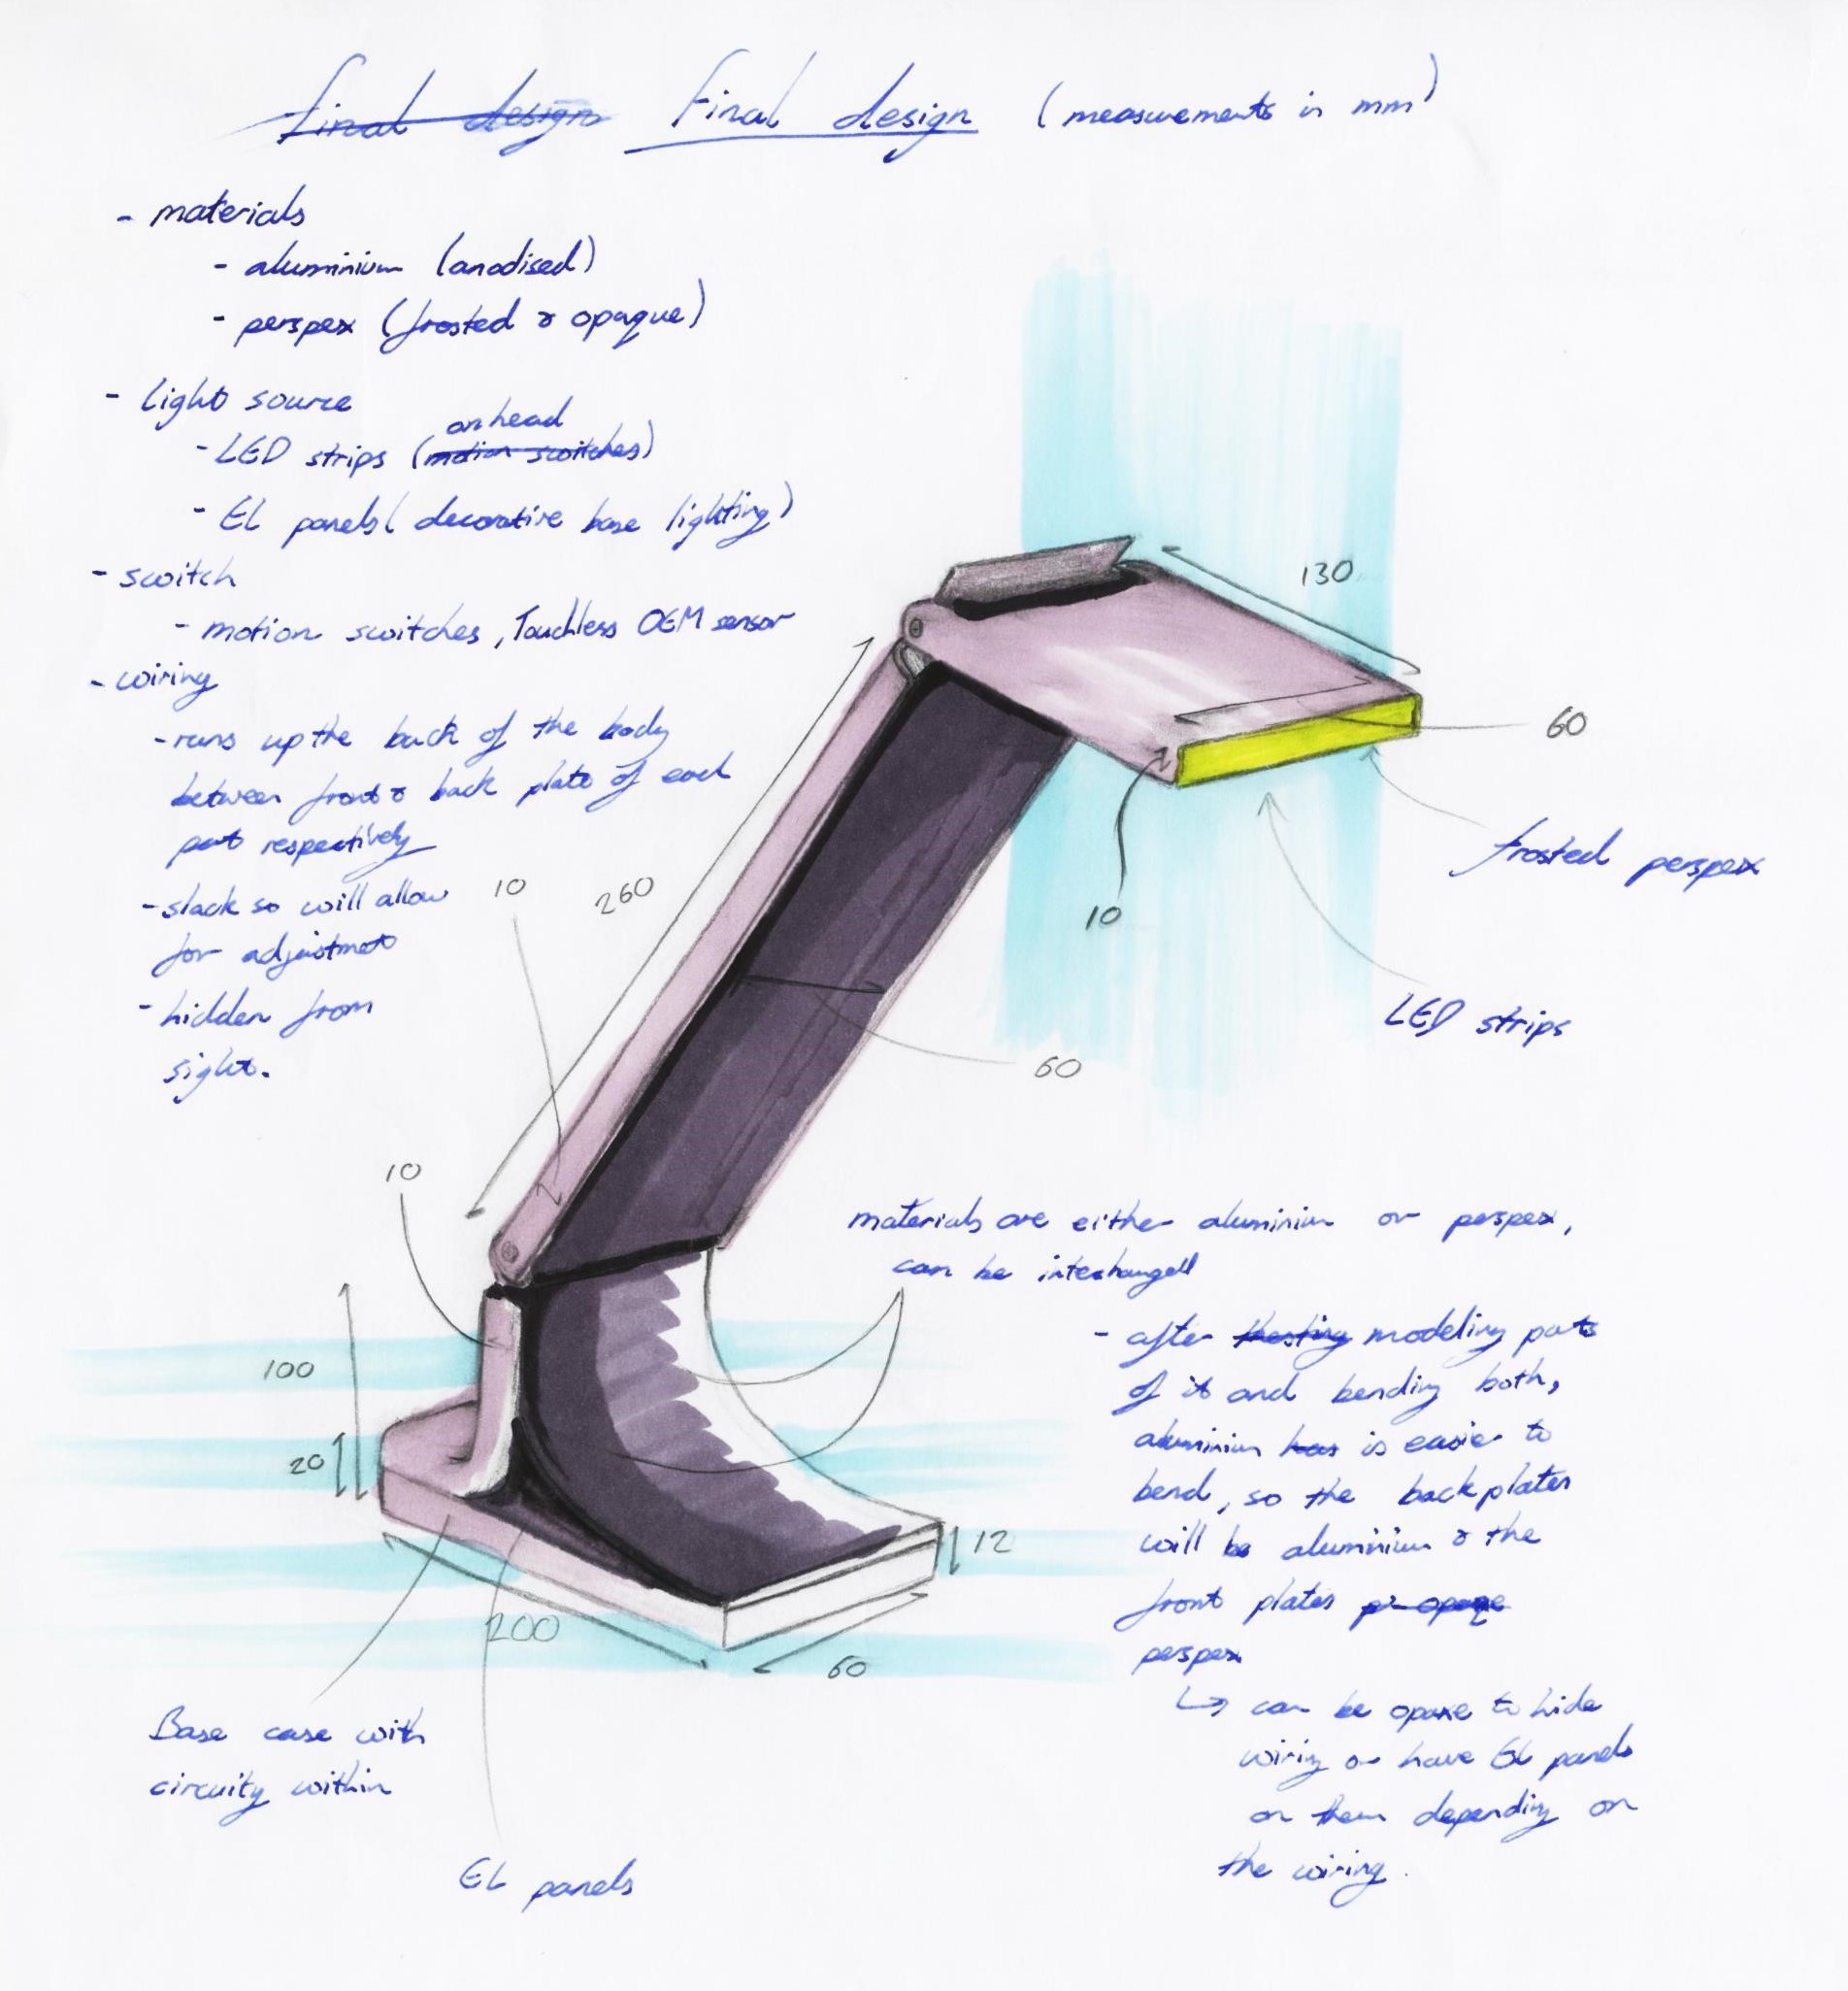 final design Final design (measurements in mm)
- materials
- aluminium (anodised)
- perspex (frosted & opaque)
- light source
on head
- LED strips (motion switches)
- EL panels( decorative base lighting)
- switch
- motion switches, Touchless OEM sensor
- wiring
- runs up the back of the body
between front & back plate of each
part respectively
- slack so will allow
for adjustmet
- hidden from
sight.
130
60
10
frosted perspex
LED strips
10
260
60
10
100
20
200
60
12
materials are either aluminium or perspex,
can be interchanged
- after modeling parts
of it and bending both,
aluminium has is easier to
bend, so the backplates
will be aluminium & the
front plates
perspex
↳ can be opaxe to hide
wiring or have EL panels
on them depending on
the wiring.
Base case with
circuity within
EL panels